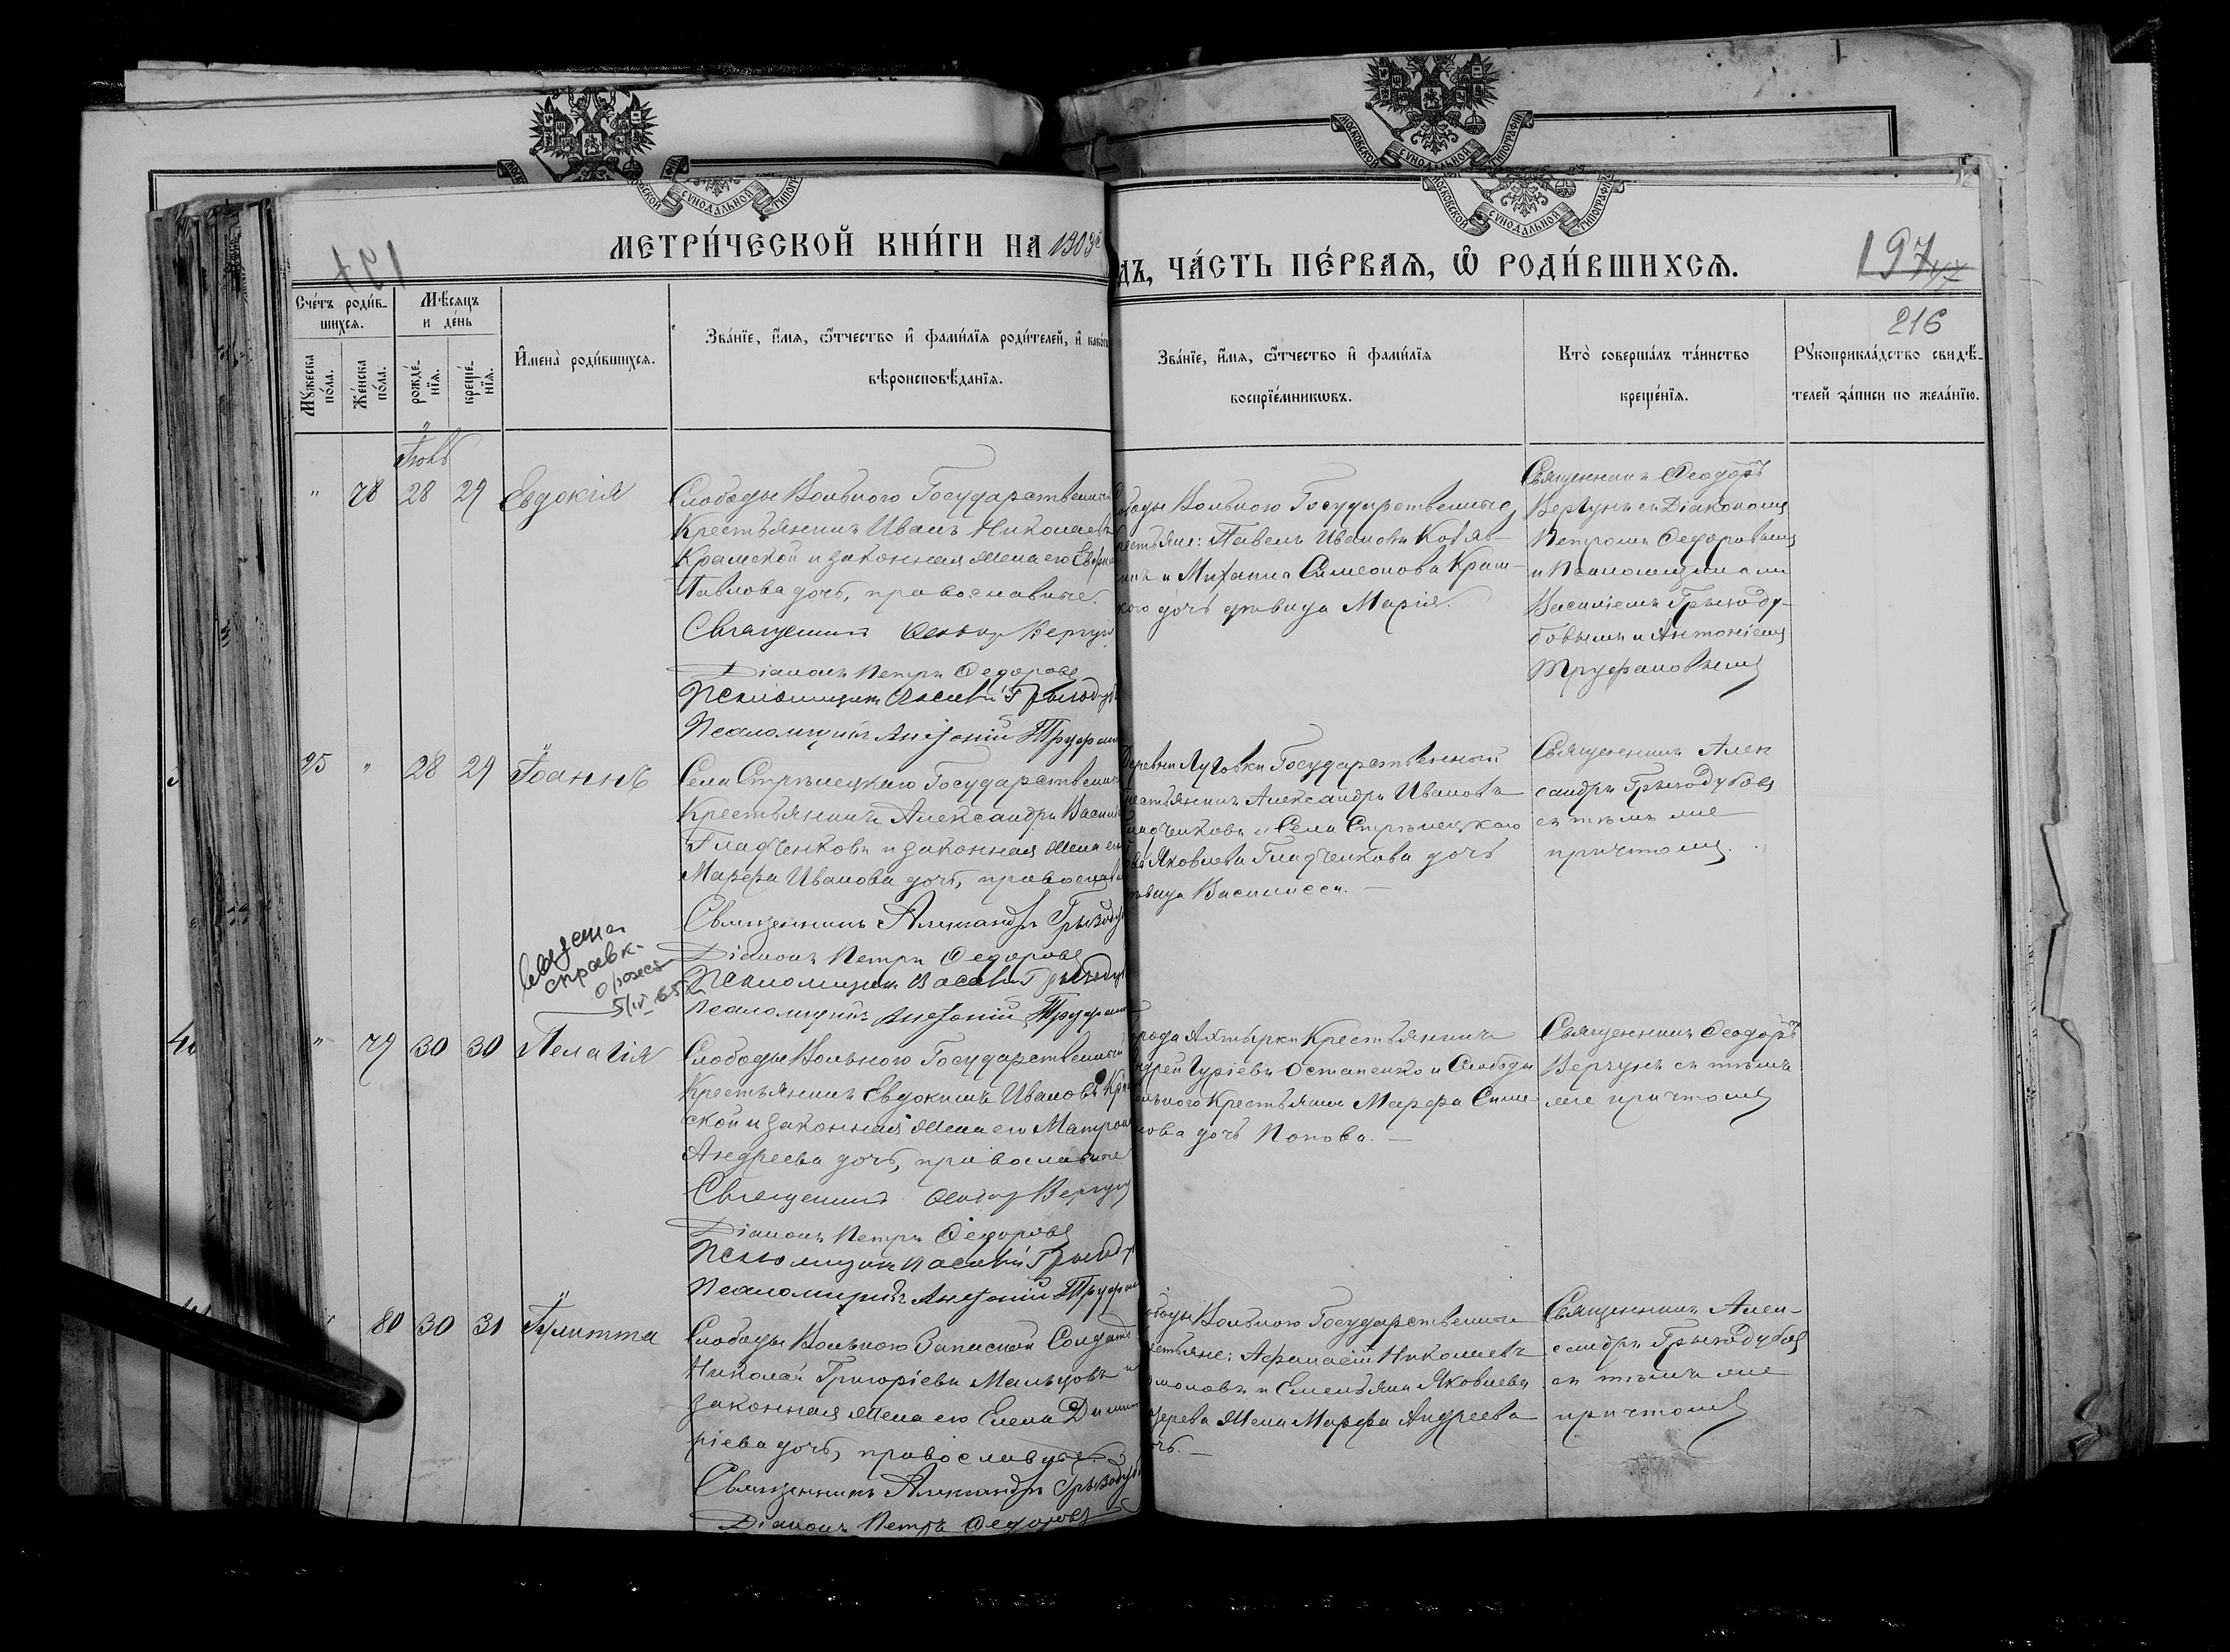 МОСКОВСКОЙ СѴНОДАЛЬНОЙ ТИПОГРАФІИ
197
МЕТРИ́ЧЕСКОЙ КНИ́ГИ НА 1903
ДЪ, ЧА́СТЬ ПЕ́РВАѦ, Ѿ РОДИ́ВШИХСѦ.
197
216
Сче́тъ роди́в-
шихсѧ.
Мѣ́сѧцъ
и де́нь
Мꙋжеска по́ла.
Же́нска по́ла.
рожде́-
нїѧ.
креще́-
нїѧ.
И҆мена̀ роди́вшихсѧ.
Зва́нїе, и҆́мѧ, ѻ҆́тчество и҆ фами́лїѧ роди́телей, и҆ како́гѡ
вѣроисповѣ́данїѧ.
Зва́нїе, и҆́мѧ, ѻ҆́тчество и҆ фами́лїѧ
воспрїе́мникѡвъ.
Кто̀ соверша́лъ та́инство
креще́нїѧ.
Рꙋкоприкла́дство свидѣ́-
телей за́писи по жела́нїю.
Іюль
" 78 28 29 Евдокія
Слободы Вольного Государственный
Крестьянинъ Иванъ Николаевъ
Крамской и законная жена его
Павлова дочь, православные.
Священникъ Ѳеодоръ Вергунъ
Діаконъ Петръ Ѳедоровъ
Псаломщикъ Василій Грызодуб
Псаломщикъ Антоній Труфан
ободы Вольного Государственные
рестьяне: Павелъ Ивановъ
и Михаила Симеонова Крам-
кого дочь дѣвица Марія.
Священникъ Ѳеодоръ
Вергунъ съ Діакономъ
Петромъ Ѳедоровымъ
и Псаломщиками
Василіемъ Грызоду-
бовымъ и Антоніемъ
Труфановымъ
95 " 28 29 Іоаннъ
Села Стрѣлецкаго Государственный
Крестьянинъ Александръ Васил
Гладченковъ и законная жена его
Марѳа Иванова дочь, православ
Священникъ Александръ Грызодуб
Діаконъ Петръ Ѳедоровъ
Псаломщикъ Василій Грызодуб
Псаломщикъ Антоній Труфан
Деревни Луговки Государственный
рестьянинъ Александръ Ивановъ
ладченковъ и Села Стрѣлецкаго
Яковлева Гладченкова дочь
ѣвица Василисса. —
Священникъ Алек
сандръ Грызодубовъ
съ тѣмъ же
причтомъ.
справк
5/IV 65
" 79 30 30 Пелагія
Слободы Вольного Государственный
Крестьянинъ Евдокимъ Ивановъ Крам
ской и законная жена его Матрона
Андреева дочь, православные
Священникъ Ѳеодоръ Вергунъ
Діаконъ Петръ Ѳедоровъ
Псаломщикъ Василій Грызодуб
Псаломщикъ Антоній Труфан
рода Ахтырки Крестьянинъ
ндрей Гуріевъ Остапенко и Слободы
ольного Крестьянка Марѳа Симе
нова дочь Попова. —
Священникъ Ѳеодоръ
Вергунъ съ тѣмъ
же причтомъ
" 80 30 31 Іулитта
Слободы Вольного Запасной Солдатъ
Николай Григоріевъ Мальцовъ и
законная жена его Елена Димит
ріева дочь, православные
Священникъ Александръ Грызодуб
Діаконъ Петръ Ѳедоровъ
ободы Вольного Государственные
рестьяне: Аѳанасій Николаевъ
и Емельяна Яковлева
жена Марѳа Андреева
очь. —
Священникъ Алек-
сандръ Грызодубовъ
съ тѣмъ же
причтомъ